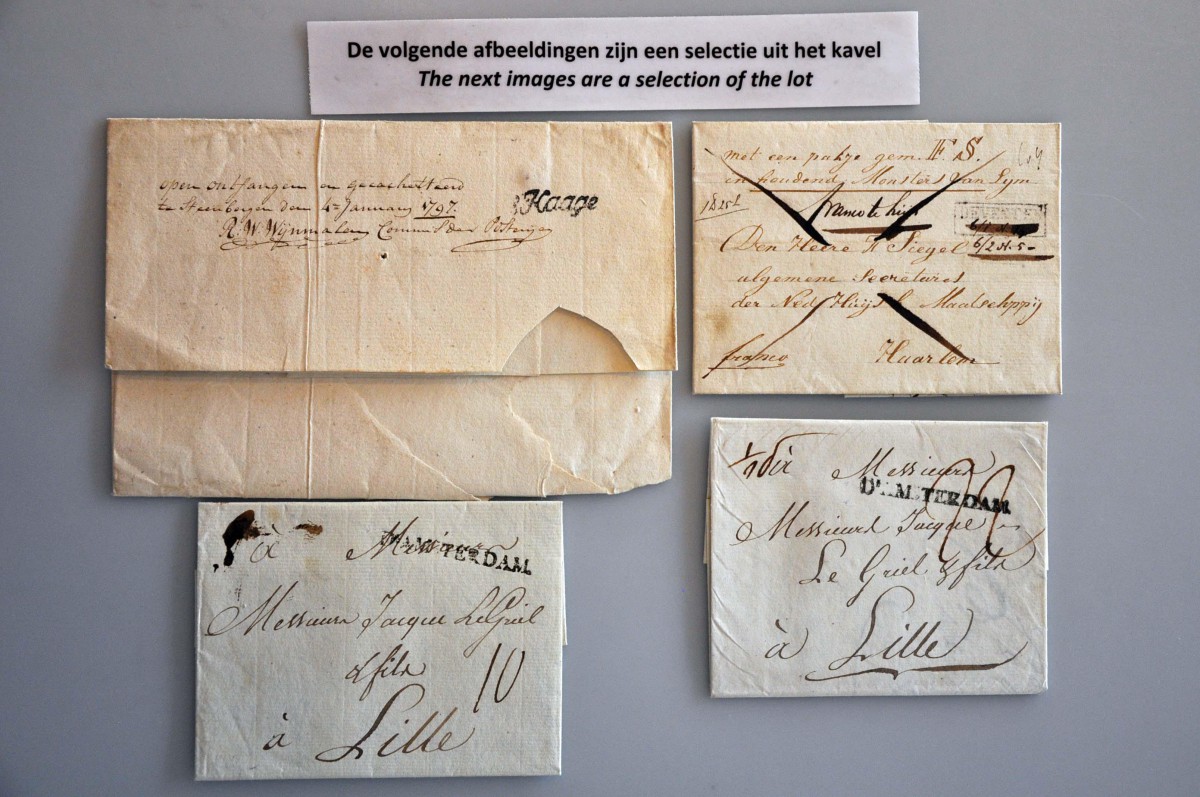 De volgende afbeeldingen zijn een selectie uit het kavel
The next images are a selection of the lot
open ontfangen en gecachetteerd
te Steenbergen den 4e January 1797.
R. W. Wijnmalen Commis der Posterije
sHaage
met een pakje gem. F. S.
inhoudend Monsters van Lym
franco te huis
DEVENTER
6/2 St. 5-
Den Heere Siegel
algemene Secretaris
der Ned Huijsh Maatschppij
franco Haarlem
à Messieurs
AMSTERDAM
Messieurs Jacque Le Griel
& fils
10
à Lille
Messieurs
D'AMSTERDAM
Messieurs Jacque
Le Griel & fils
à Lille